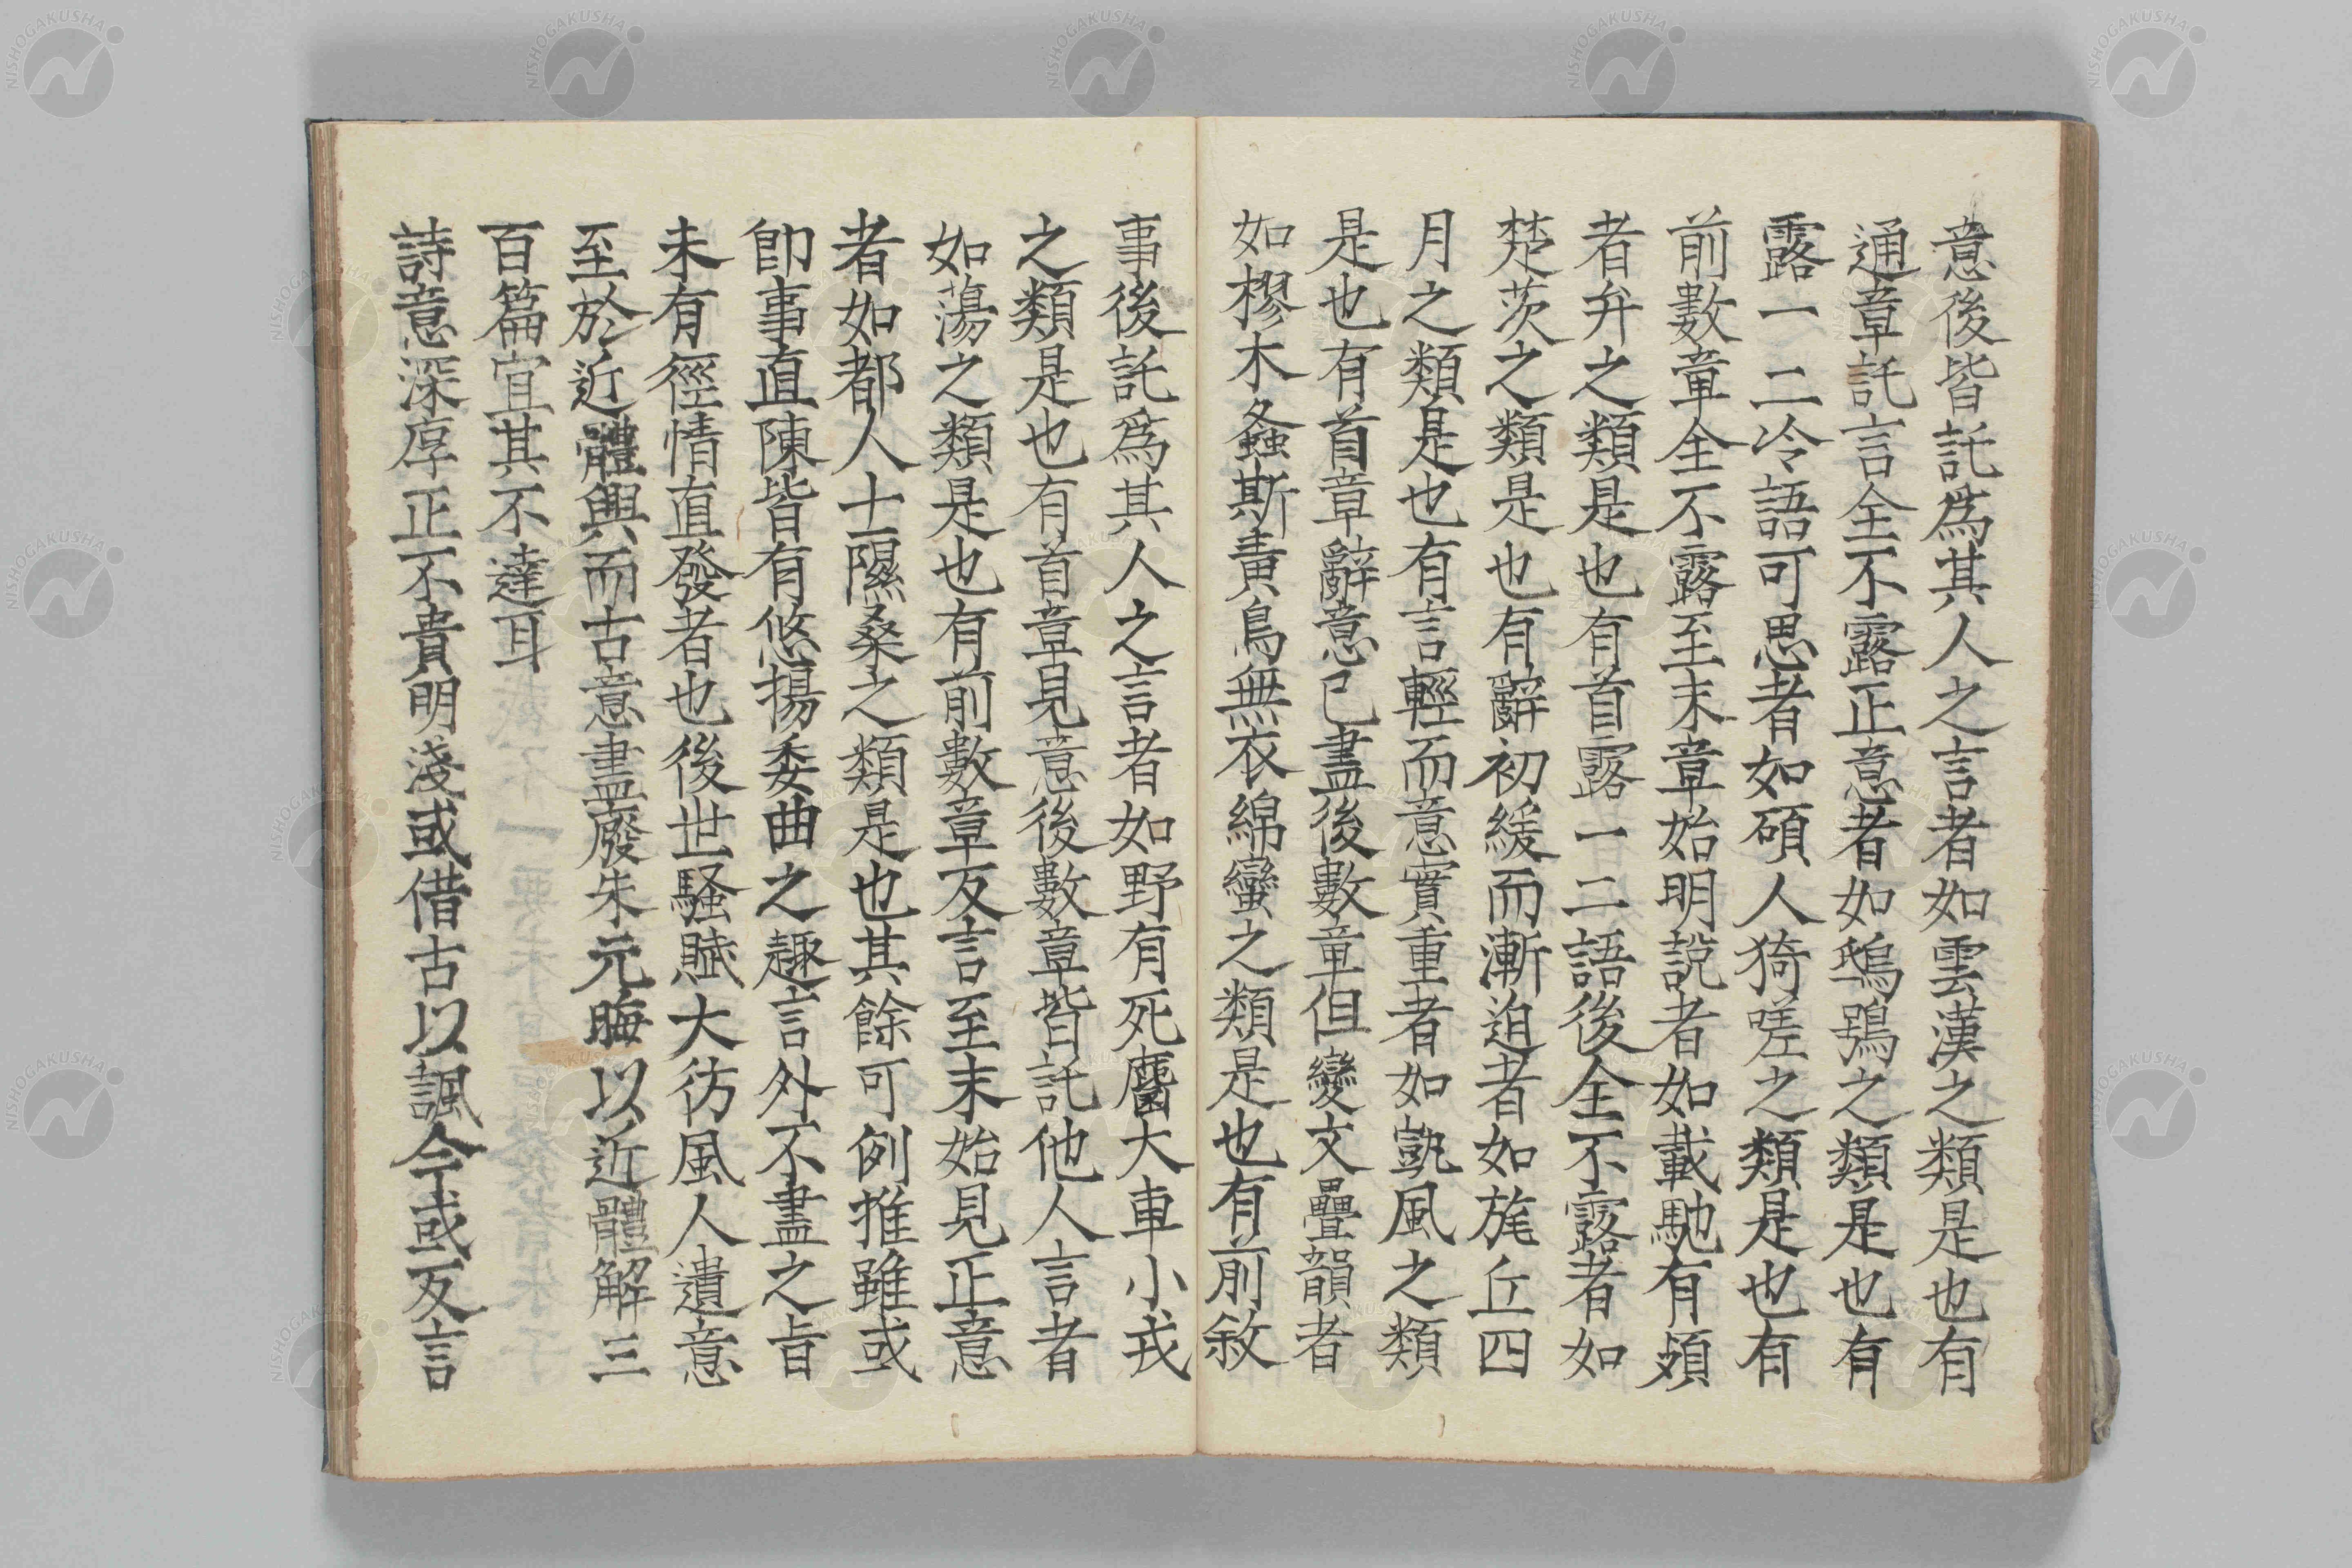 意後皆託爲其人之言者如雲漢之類是也有
通章託言全不露正意者如鴟鴞之類是也有
露一二冷語可思者如碩人猗嗟之類是也有
前數章全不露至末章始明說者如載馳有頍
者弁之類是也有首露一二語後全不露者如
楚茨之類是也有辭初緩而漸迫者如旄丘四
月之類是也有言輕而意實重者如凱風之類
是也有首章辭意已盡後數章但變文疊韻者
如樛木螽斯黄鳥無衣綿蠻之類是也有前敘
事後託爲其人之言者如野有死麕大車小戎
之類是也有首章見意後數章皆託他人言者
如蕩之類是也有前數章反言至末始見正意
者如都人士隰桑之類是也其餘可例推雖或
卽事直陳皆有悠揚委曲之趣言外不盡之旨
未有徑情直發者也後世騷賦大彷風人遺意
至於近體興而古意盡廢朱元晦以近體解三
百篇宜其不達耳
詩意深厚正不貴明淺或借古以諷今或反言
NISHOGAKUSHA